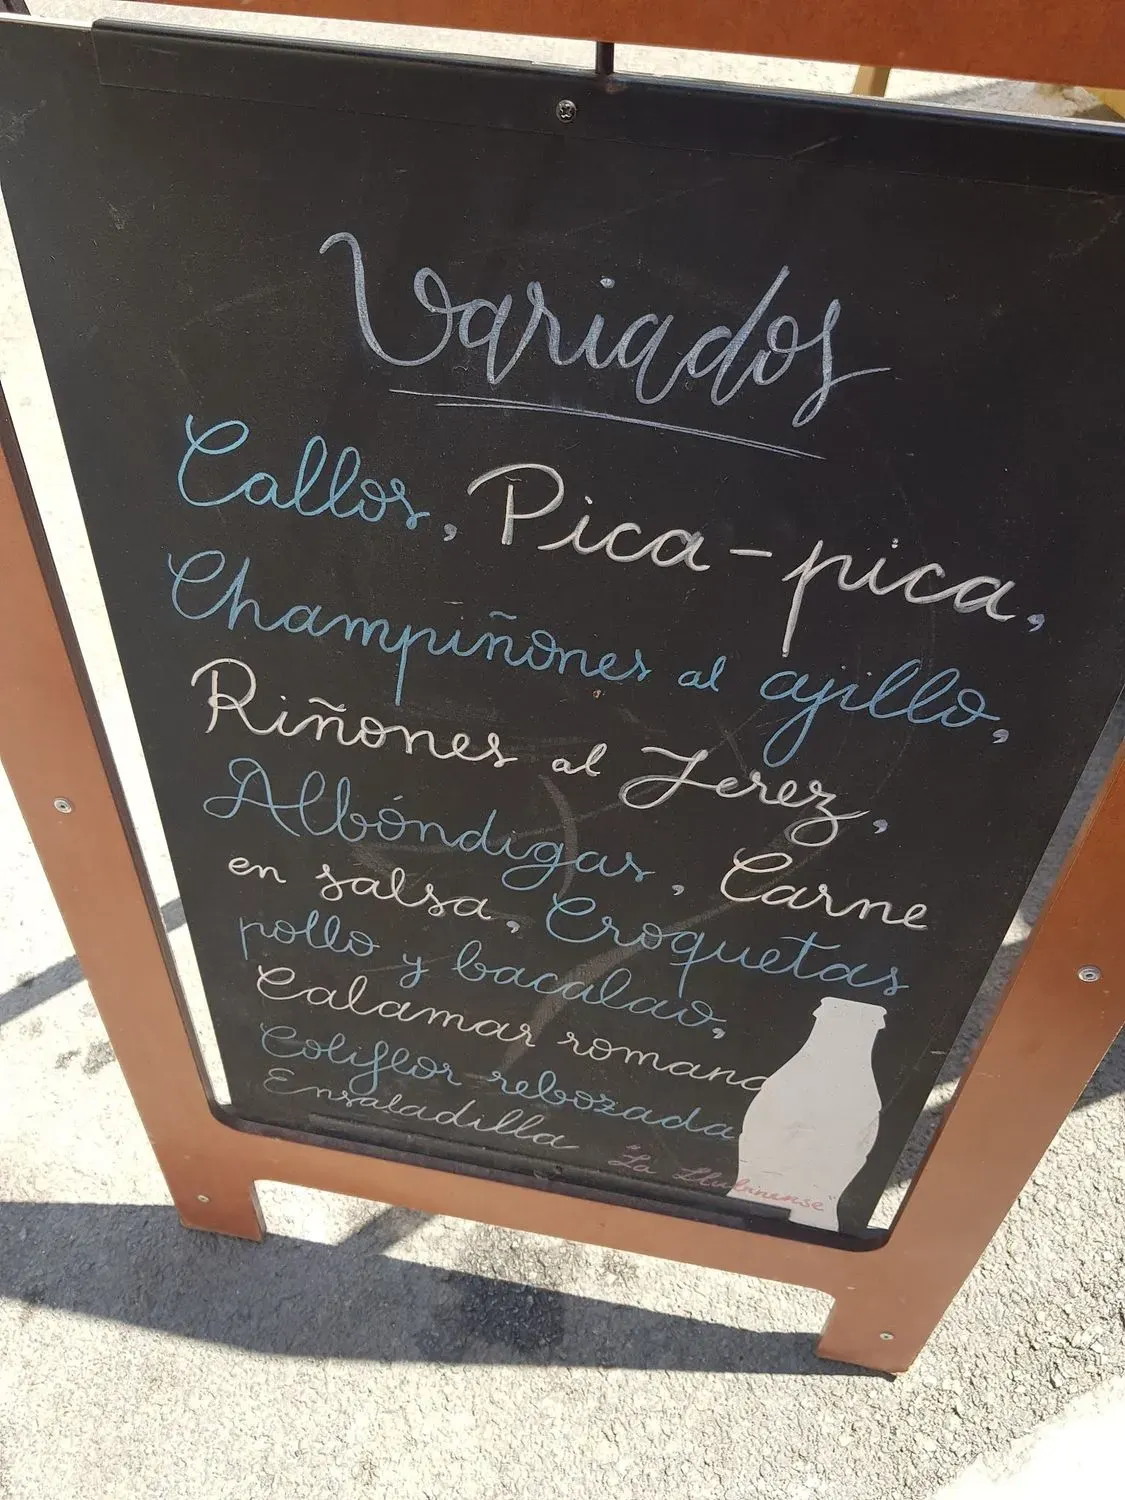 Variados
Callos, Pica-pica,
Champiñones al ajillo,
Riñones al Jerez,
Albóndigas, Carne
en salsa, Croquetas
pollo y bacalao,
Calamar romana
Coliflor rebozada
Ensaladilla
"La Llubinense"